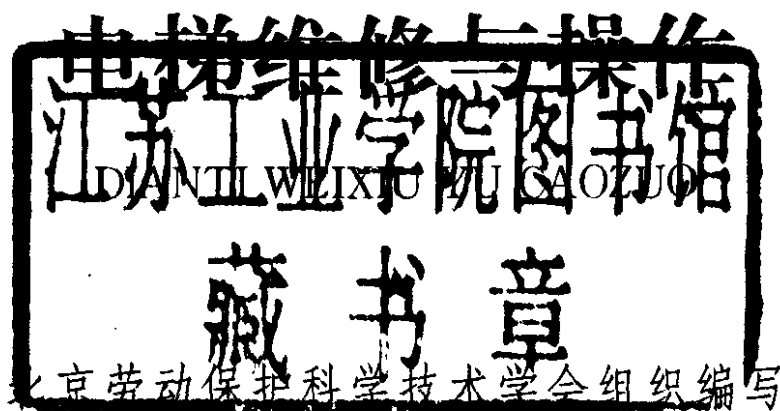 电梯维修与操作
江苏工业学院图书馆
DIANTI WEIXIU YU CAOZUO
藏书章
北京劳动保护科学技术学会组织编写